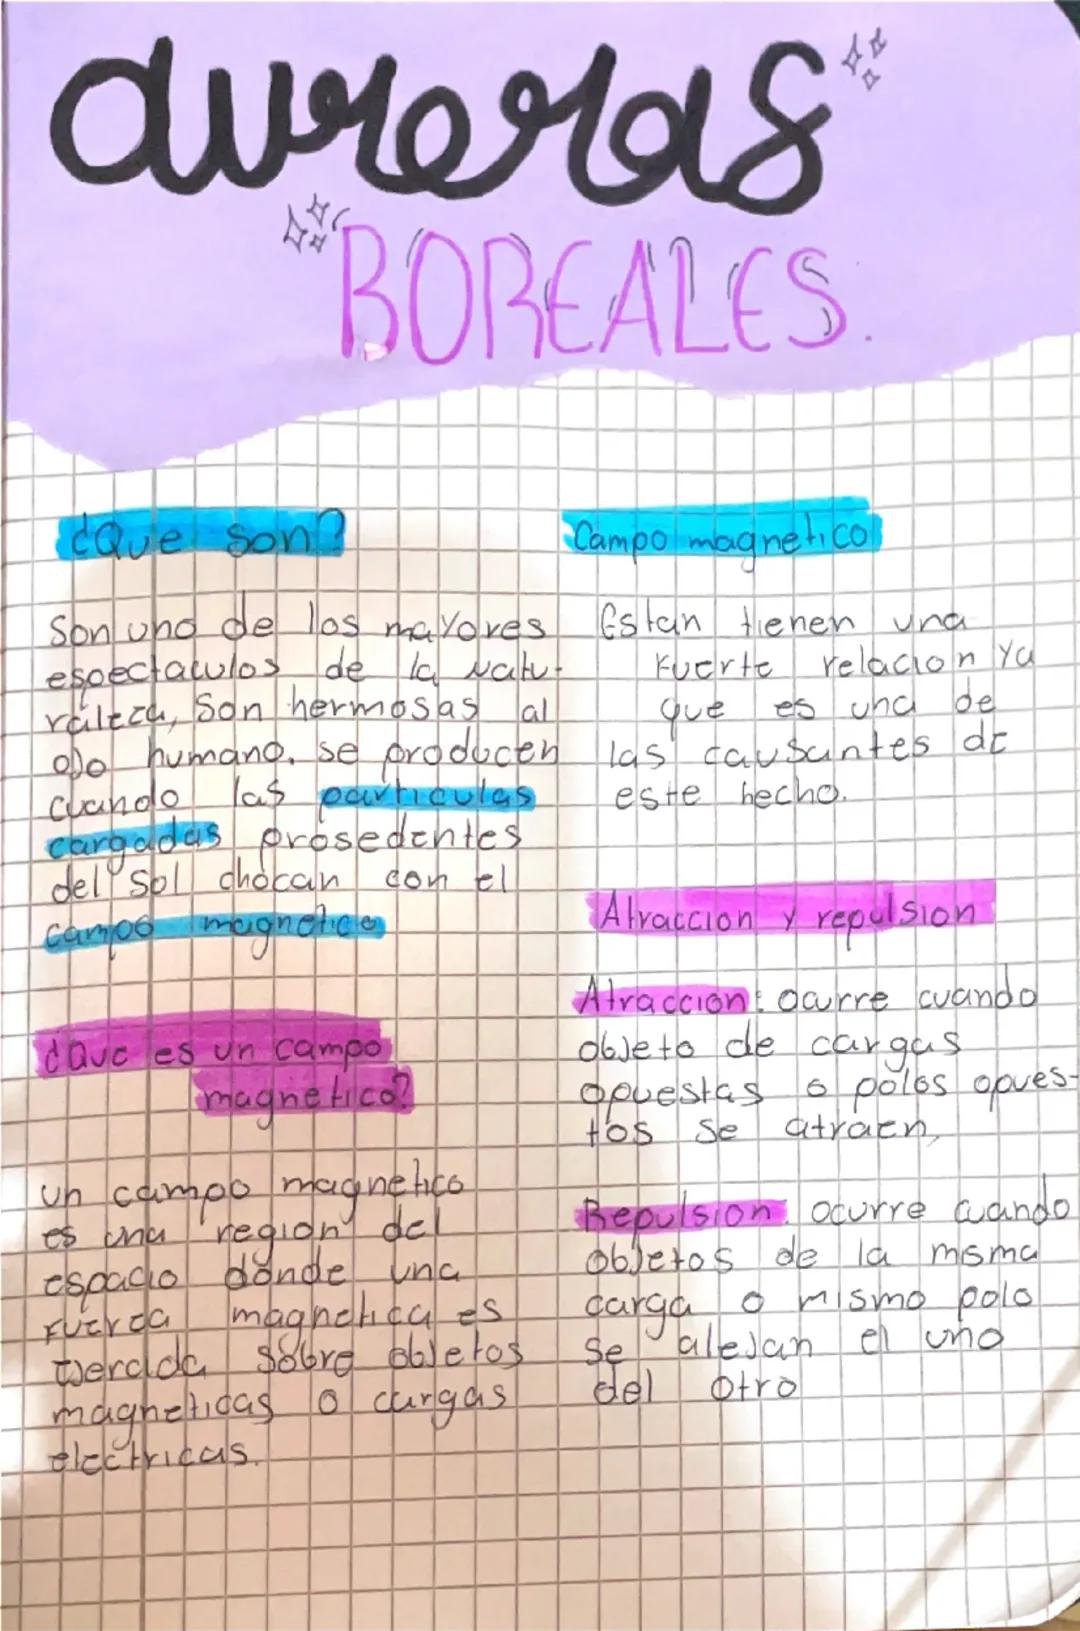 auroras
BOREALES.
¿Que son?
Son uno de los mayores
espectaculos de la Natu-
raleza, Son hermosas al
ojo humano. se producen
cuando las particulas
cargadas prosedentes
del Sol chocan con el
campo magnetico
¿Que es un campo
magnetico?
un campo magnetico
es una region del
espacio donde una
fuerza magnetica es
ejercida sobre objetos
magneticas o cargas
electricas.
Campo magnetico
Estan tienen una
fuerte relacion ya
que es una de
las causantes de
este hecho.
Atraccion y repulsion
Atraccion: ocurre cuando
objeto de cargas
opuestas o polos opues-
tos se atraen,
Repulsion: ocurre cuando
objetos de la misma
carga o mismo polo
se alejan el uno
del otro